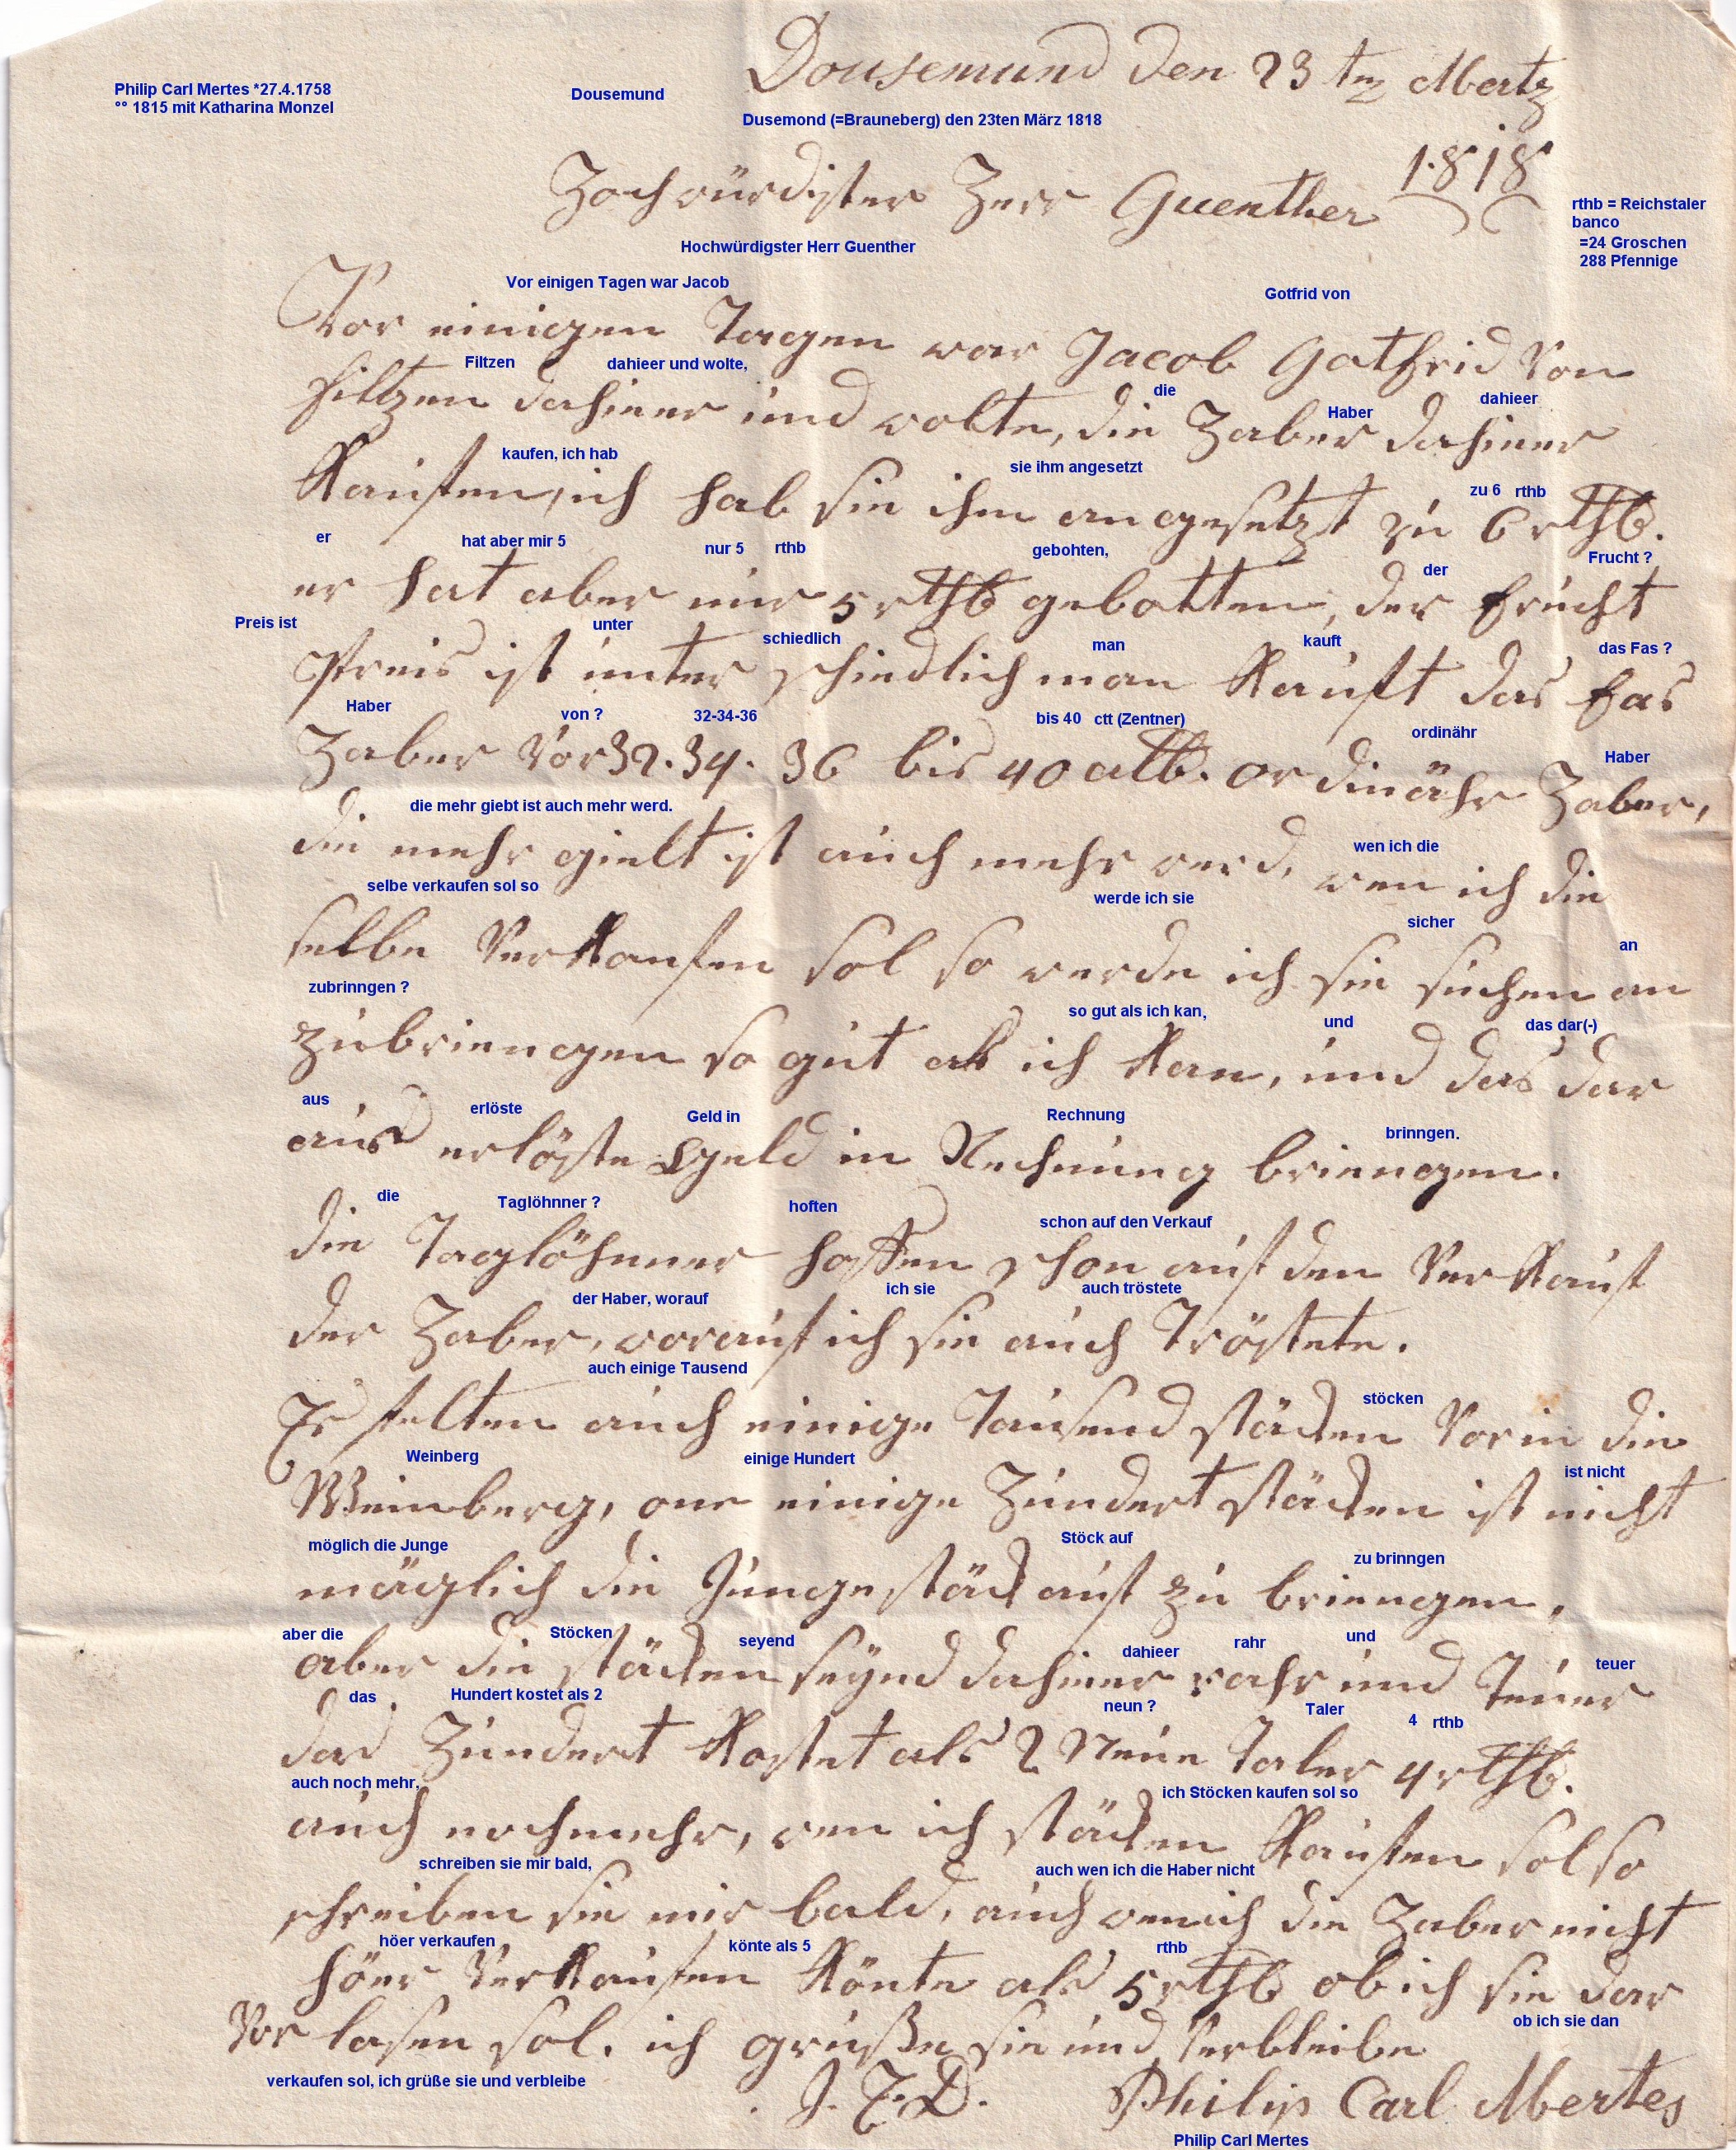 Dousemund den 23 tn Mertz
Philip Carl Mertes *27.4.1758
°° 1815 mit Katharina Monzel
Dousemund
Dusemond (=Brauneberg) den 23ten März 1818
1818
Hochwürdigster Herr Guenther
rthb = Reichstaler
banco
=24 Groschen
288 Pfennige
Hochwürdigster Herr Guenther
Vor einigen Tagen war Jacob Gotfrid von
Vor einigen Tagen war Jacob Gotfrid Von
Filtzen dahieer und wolte, die Haber dahieer
filtzen dahieer und wolte, die Haber dahieer
kaufen, ich hab sie ihm angesetzt zu 6 rthb
Kaufen, ich hab sie ihm angesetzt zu 6 rthlr.
er hat aber mir 5 nur 5 rthb gebohten, der Frucht ?
er hat aber nur 5 rthlr gebotten, der frucht
Preis ist unter schiedlich man kauft das Fas ?
Preis ist unter schiedlich man Kauft das fas
Haber von ? 32-34-36 bis 40 ctt (Zentner) ordinähr Haber
Haber Vor 32. 34. 36 bis 40 alb. ordinähr Haber,
die mehr giebt ist auch mehr werd. wen ich die
die mehr gielt ist auch mehr werd, wen ich die
selbe verkaufen sol so werde ich sie sicher an
selbe VerKaufen sol so werde ich sie suchen an
zubrinngen ? so gut als ich kan, und das dar(-)
zubrinngen so gut als ich Kan, und das dar
aus erlöste Geld in Rechnung brinngen.
aus erlöste Geld in Rechnung brinngen.
die Taglöhnner ? hoften schon auf den Verkauf
die Taglöhnner hoften schon auf den VerKauf
der Haber, worauf ich sie auch tröstete
der Haber, worauf ich sie auch Tröstete.
auch einige Tausend stöcken
Es felten auch einige Tausend stäcken Vor in die
Weinberg einige Hundert ist nicht
Weinberg, one einige Hundert stäcken ist nicht
möglich die Junge Stöck auf zu brinngen
mäglich die Junge stäck auf zu brinngen,
aber die Stöcken seyend dahieer rahr und teuer
aber die stäcken seynd dahieer rahr und Teuer
das Hundert kostet als 2 neun ? Taler 4 rthb
das Hundert Kostet als 2 Neue Taler 4 rthlr.
auch noch mehr, ich Stöcken kaufen sol so
auch noch mehr, wen ich stäcken Kaufen sol so
schreiben sie mir bald, auch wen ich die Haber nicht
schreiben sie mir bald, auch wen ich die Haber nicht
höer verkaufen könte als 5 rthb
höer VerKaufen Könte als 5 rthlr ob ich sie dar
ob ich sie dan
Vor lasen sol. ich grüße sie und Verbleibe
verkaufen sol, ich grüße sie und verbleibe
J. E. D. Philip Carl Mertes
Philip Carl Mertes